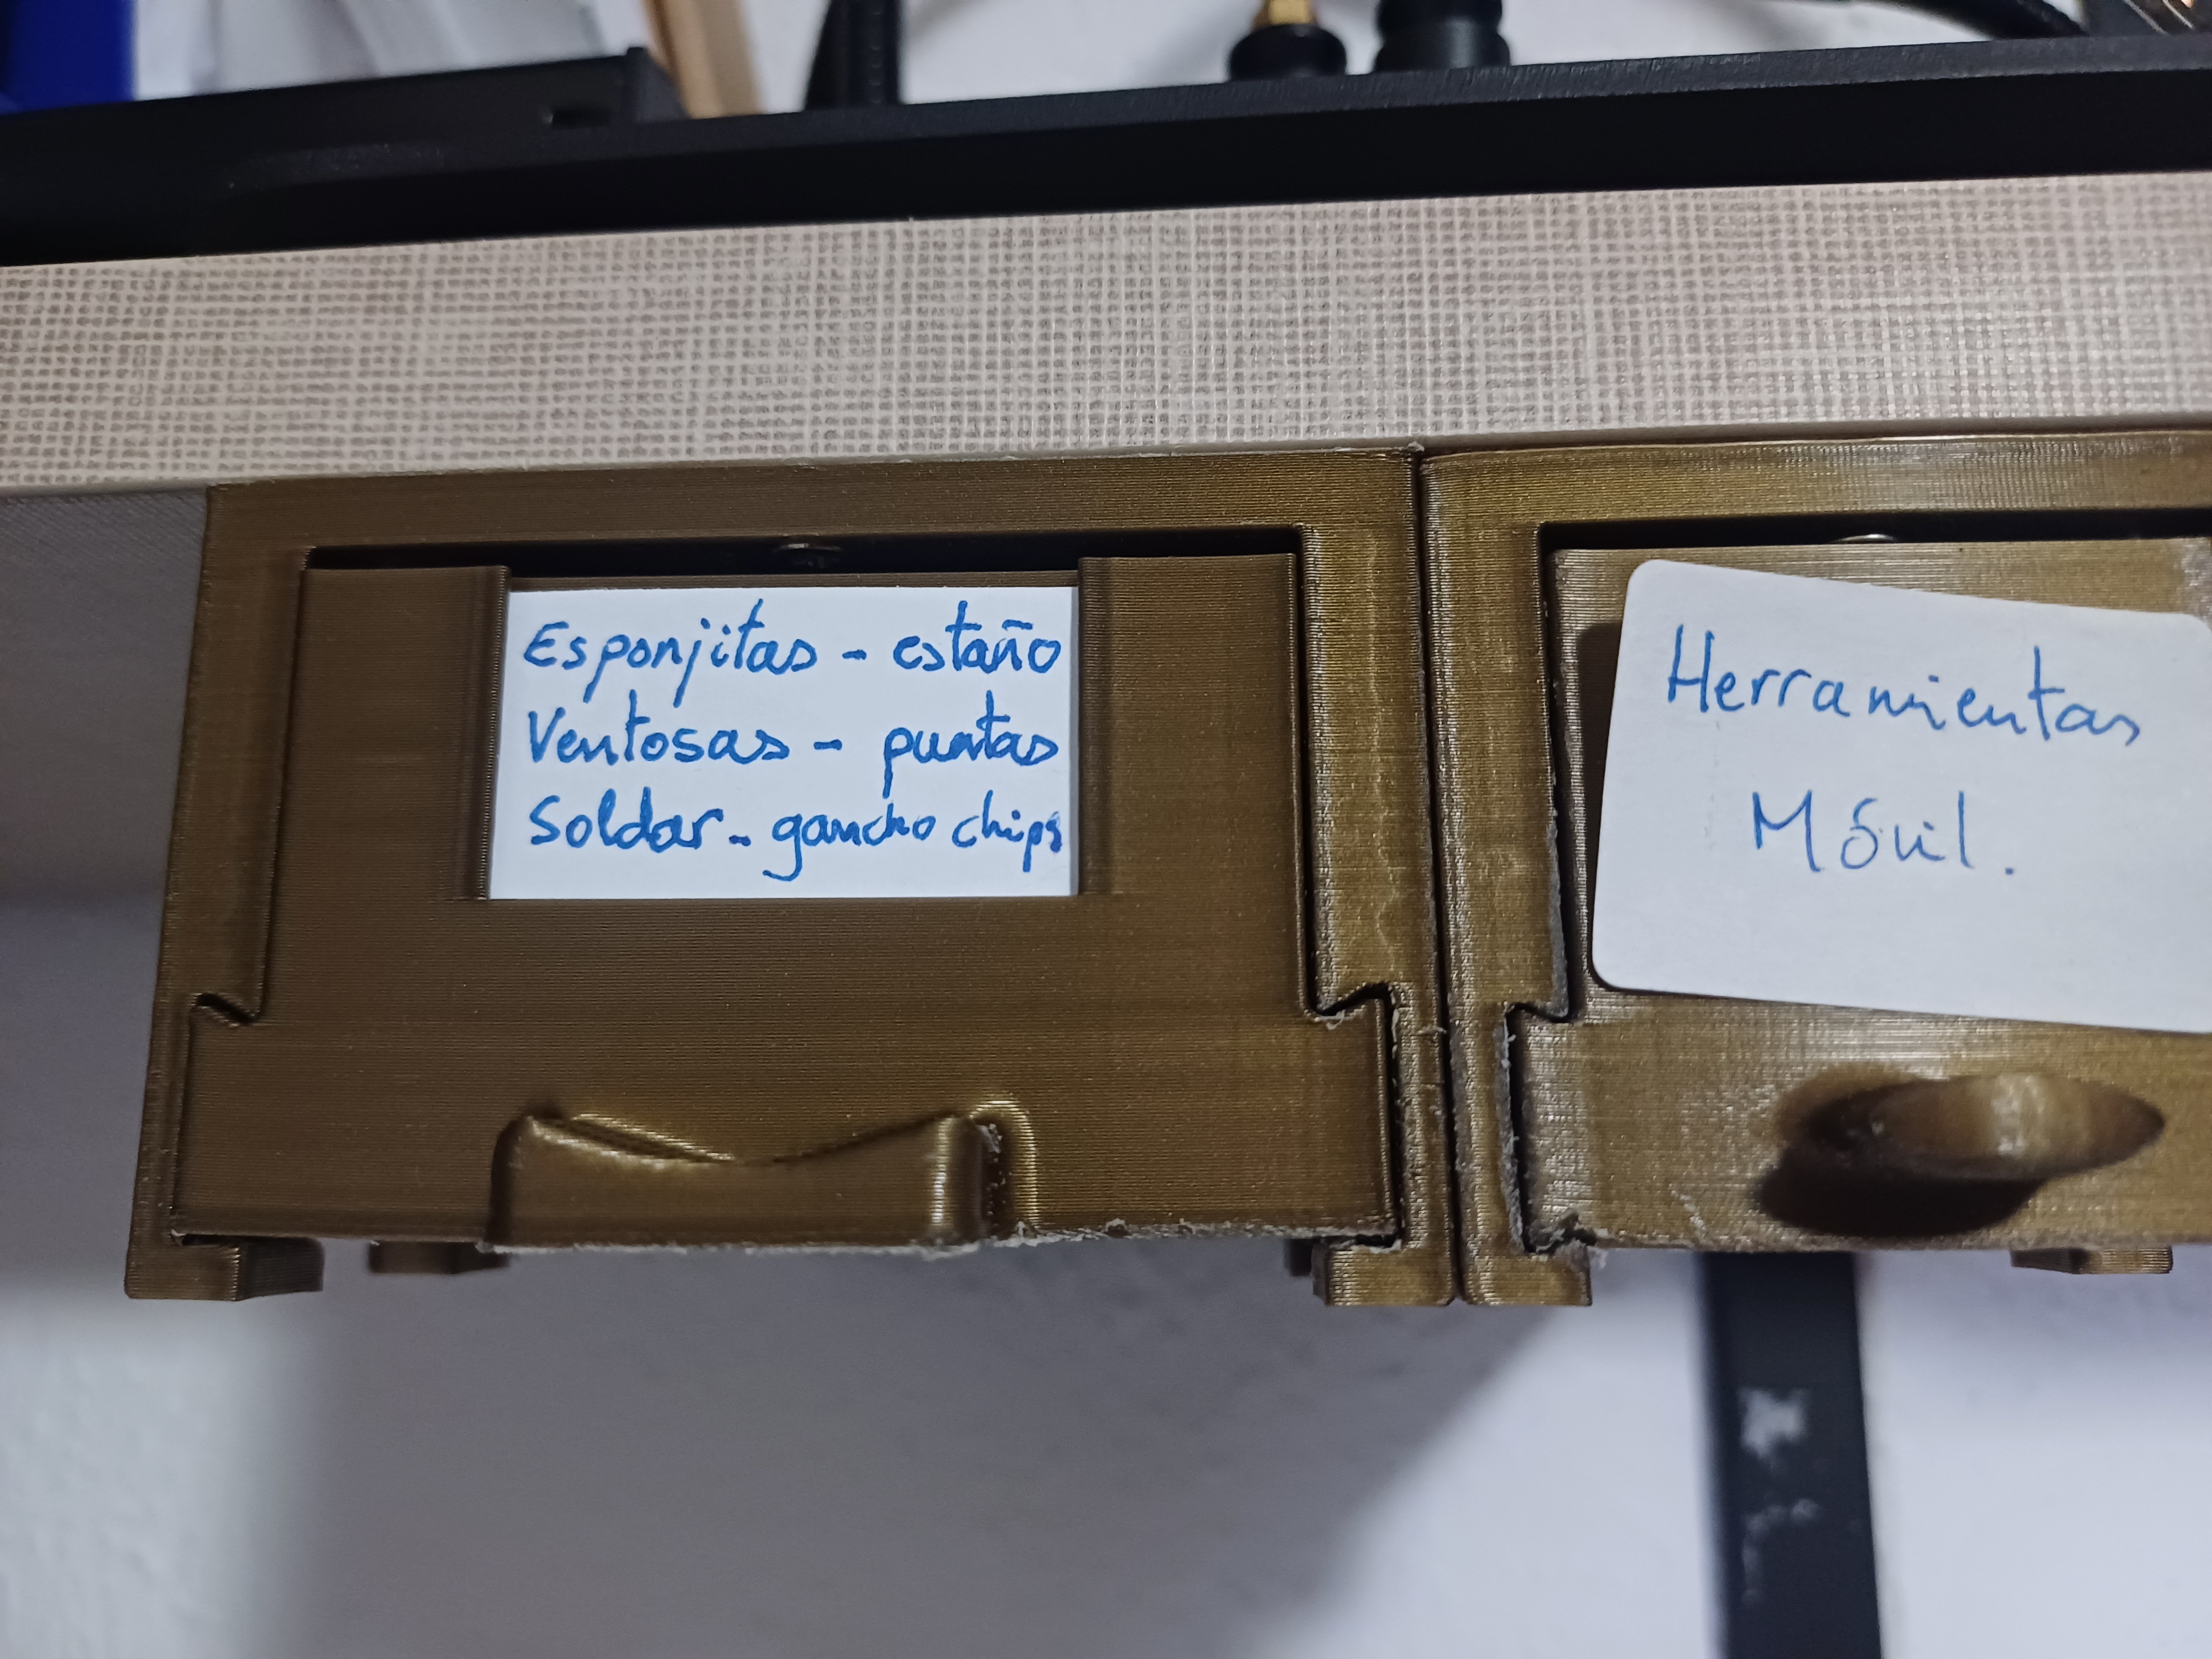 Esponjitas - estaño
Ventosas - puntas
Soldar - gancho chips
Herramientas
Móvil.